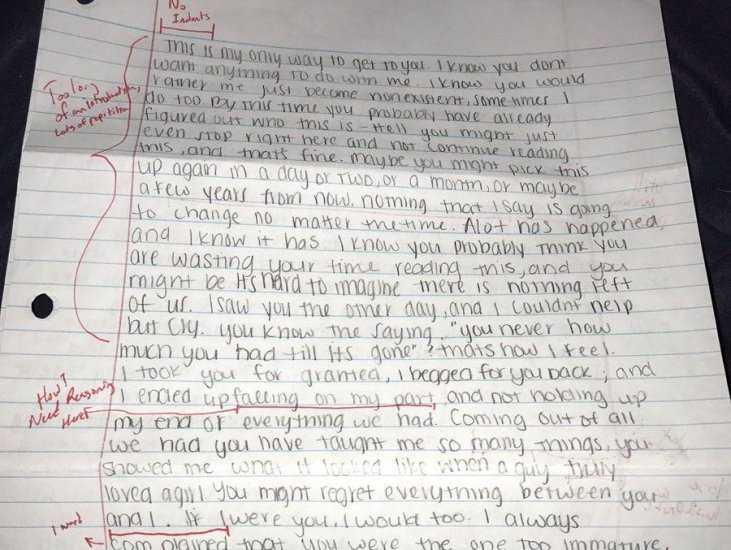 No
Indents
This is my only way to get to you. I know you dont
want anything to do with me. I know you would
rather me just become nonexistent, sometimes I
Too long
of an introduction,
Lots of repetition
do too. By this time you probably have already
figured out who this is - Hell you might just
even stop right here and not continue reading
this, and thats fine. maybe you might pick this
up again in a day or two, or a month, or maybe
a few years from now, nothing that I say is going
to change no matter the time. Alot has happened,
and I know it has. I know you probably think you
are wasting your time reading this, and you
might be its hard to imagine there is nothing left
of us. I saw you the other day, and I couldnt help
but cry. you know the saying, "you never how
much you had till its gone"? thats how I feel.
I took you for granted, I begged for you back, and
How?
Need Reasoning
Here!
I ended up falling on my part, and not holding up
my end of everything we had. Coming out of all
we had you have taught me so many things, you
showed me what it looked like when a guy truly
loved a girl you might regret everything between you
and I. If I were you, I would too. I always
complained that you were the one too immature,